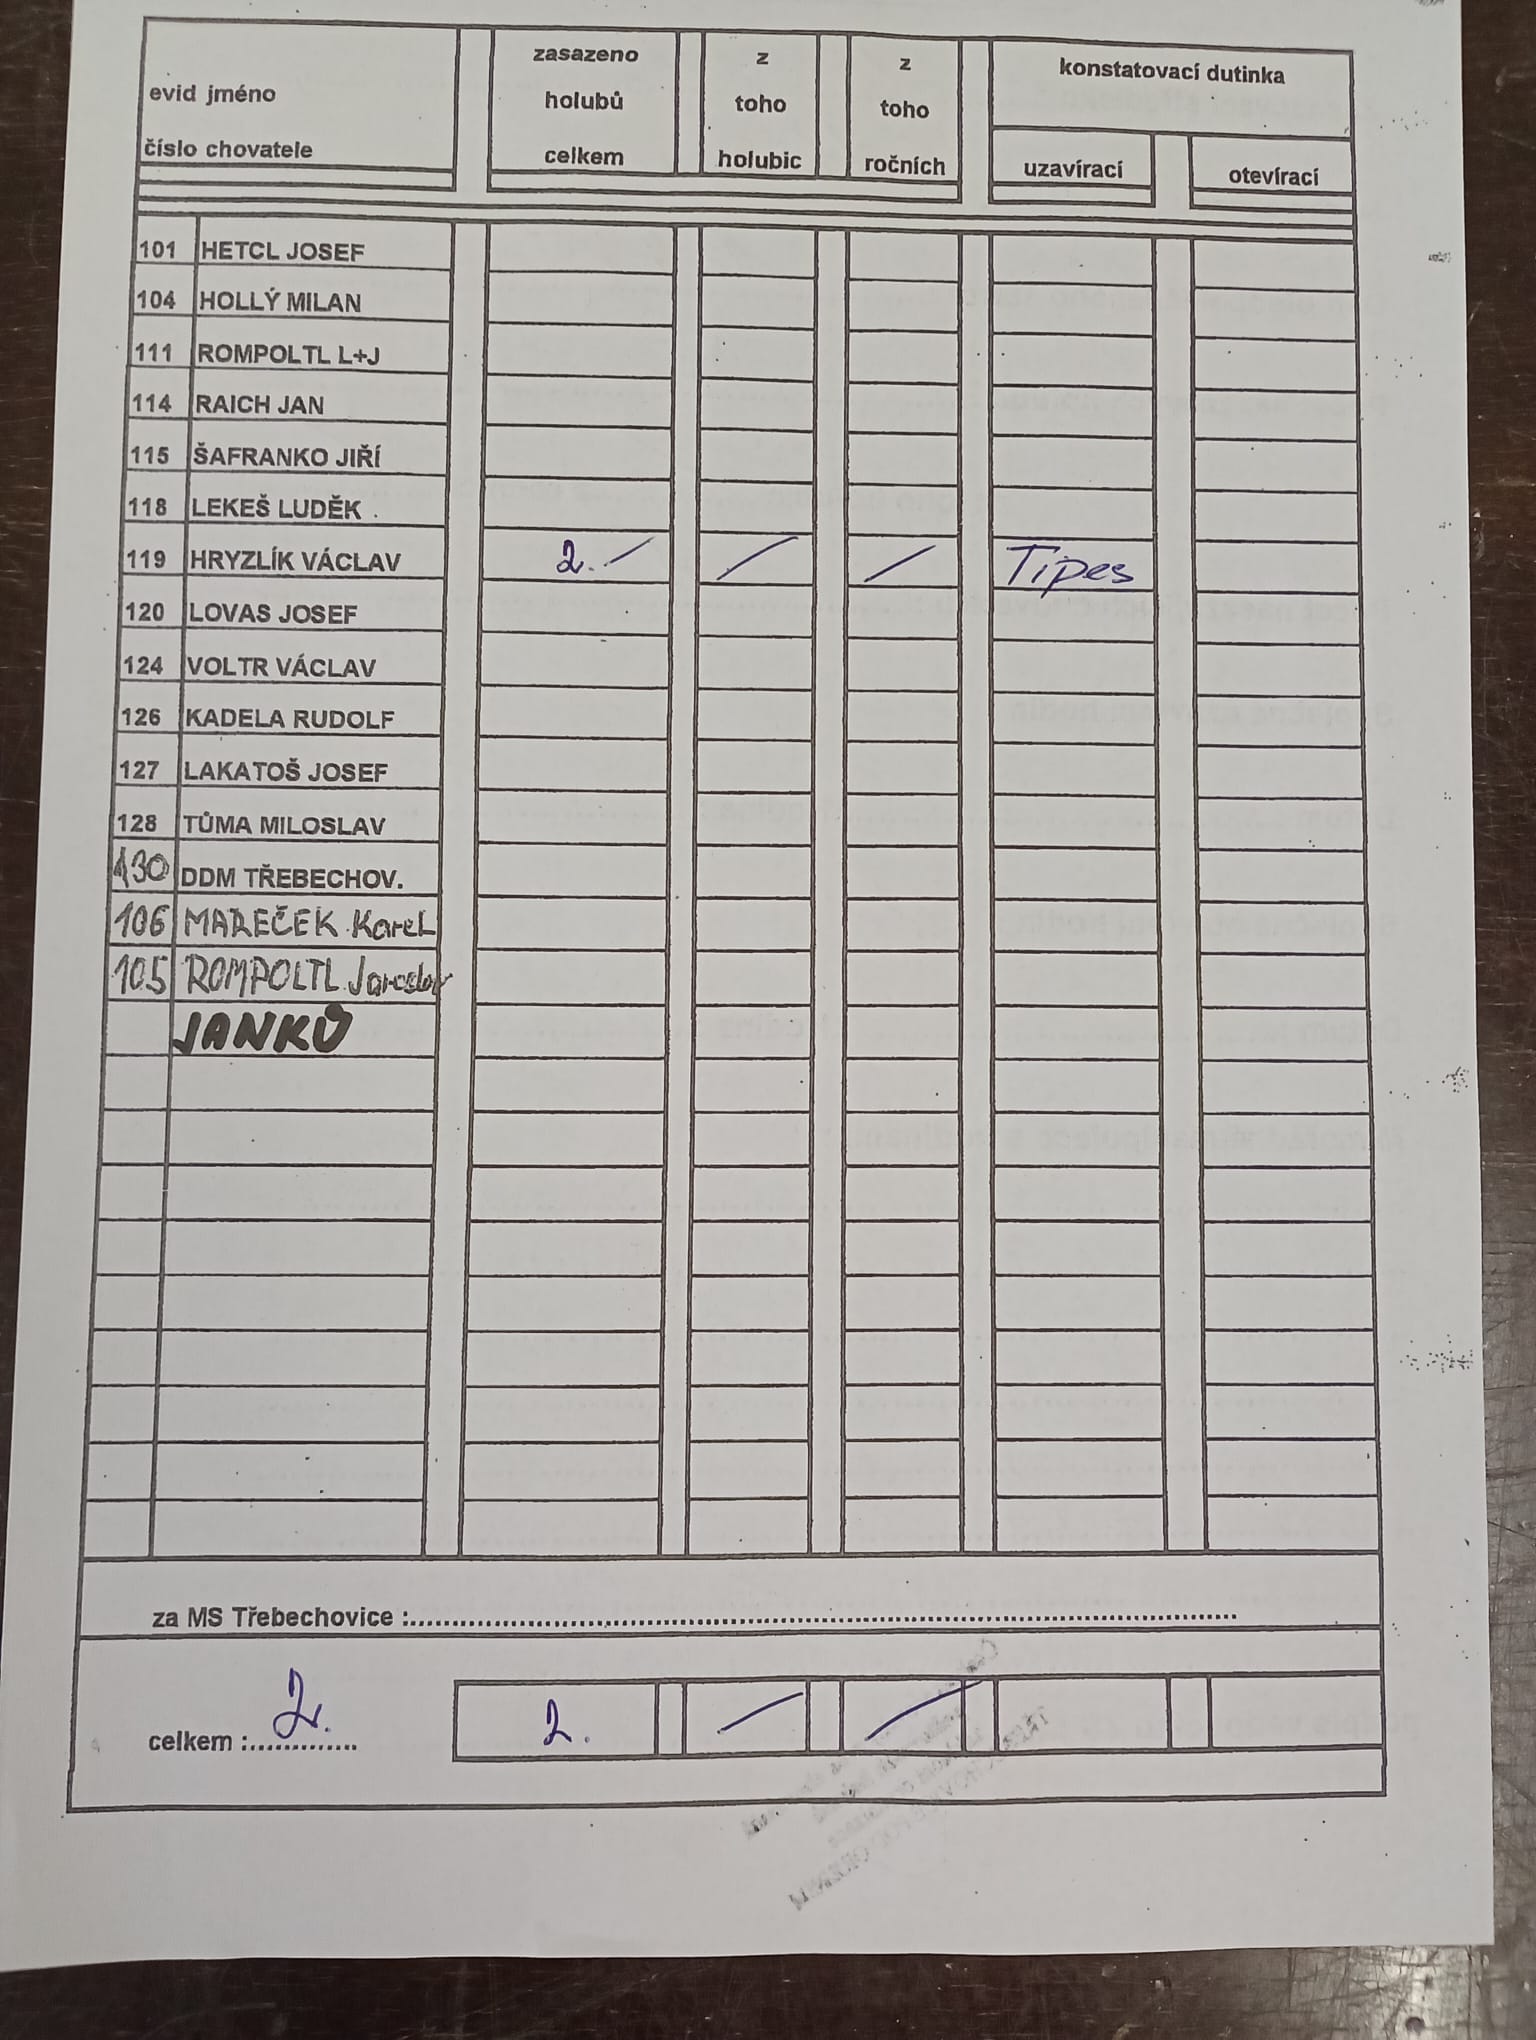 evid jméno
číslo chovatele
zasazeno
holubů
celkem
z
toho
holubic
z
toho
ročních
konstatovací dutinka
uzavírací
otevírací
101 HETCL JOSEF
104 HOLLÝ MILAN
111 ROMPOLTL L+J
114 RAICH JAN
115 ŠAFRANKO JIŘÍ
118 LEKEŠ LUDĚK
119 HRYZLÍK VÁCLAV 2. / / / Tipes
120 LOVAS JOSEF
124 VOLTR VÁCLAV
126 KADELA RUDOLF
127 LAKATOŠ JOSEF
128 TŮMA MILOSLAV
130 DDM TŘEBECHOV.
106 MAREČEK Karel
105 ROMPOLTL Jaroslav
JANKŮ
za MS Třebechovice :
celkem : 2. 2. / /